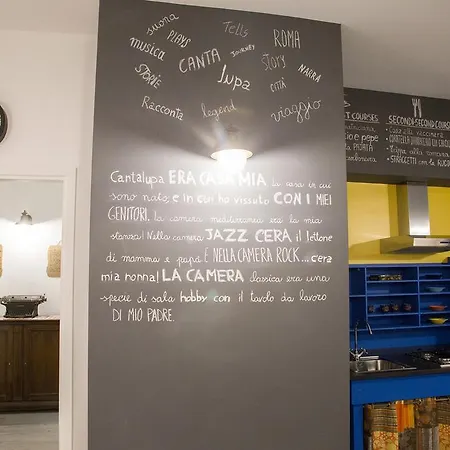 suona
Tells
musica
PLAYS
JOURNEY
ROMA
CANTA
STORY
STORIE
lupa
CITTÀ
NAGRA
Racconta
legend
viaggio
Cantalupa ERA CASA MIA la casa in cui
sono nato e in cui ho vissuto CON I MIEI
GENITORI. la camera mediterranea era la mia
stanza! Nella camera JAZZ C'ERA il lettone
di mamma e papà E NELLA CAMERA ROCK... c'era
mia nonna! LA CAMERA classica era una
specie di sala hobby con il tavolo da lavoro
DI MIO PADRE.
T COURSES:
e pepe
SECOND: SECOND COURSE
Trippa alla romana
STRACCETTI con la RUCO